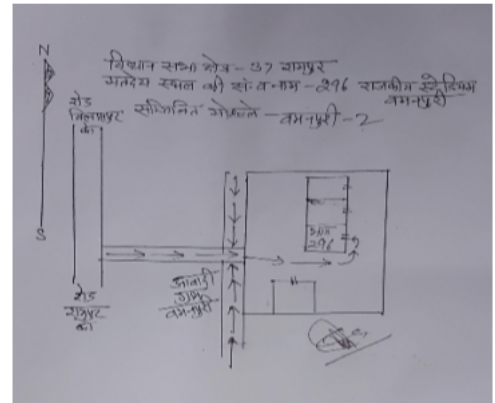 N
विधान सभा क्षेत्र - 37 रामपुर
मतदेय स्थल की सं. व नाम - 296 राजकीय स्टेडियम
बमनपुरी
सम्मिलित मोहल्ले - बमनपुरी - 2
रोड
बिलासपुर
का
S
296
आबादी
ग्राम
बमनपुरी
रोड
रामपुर
का